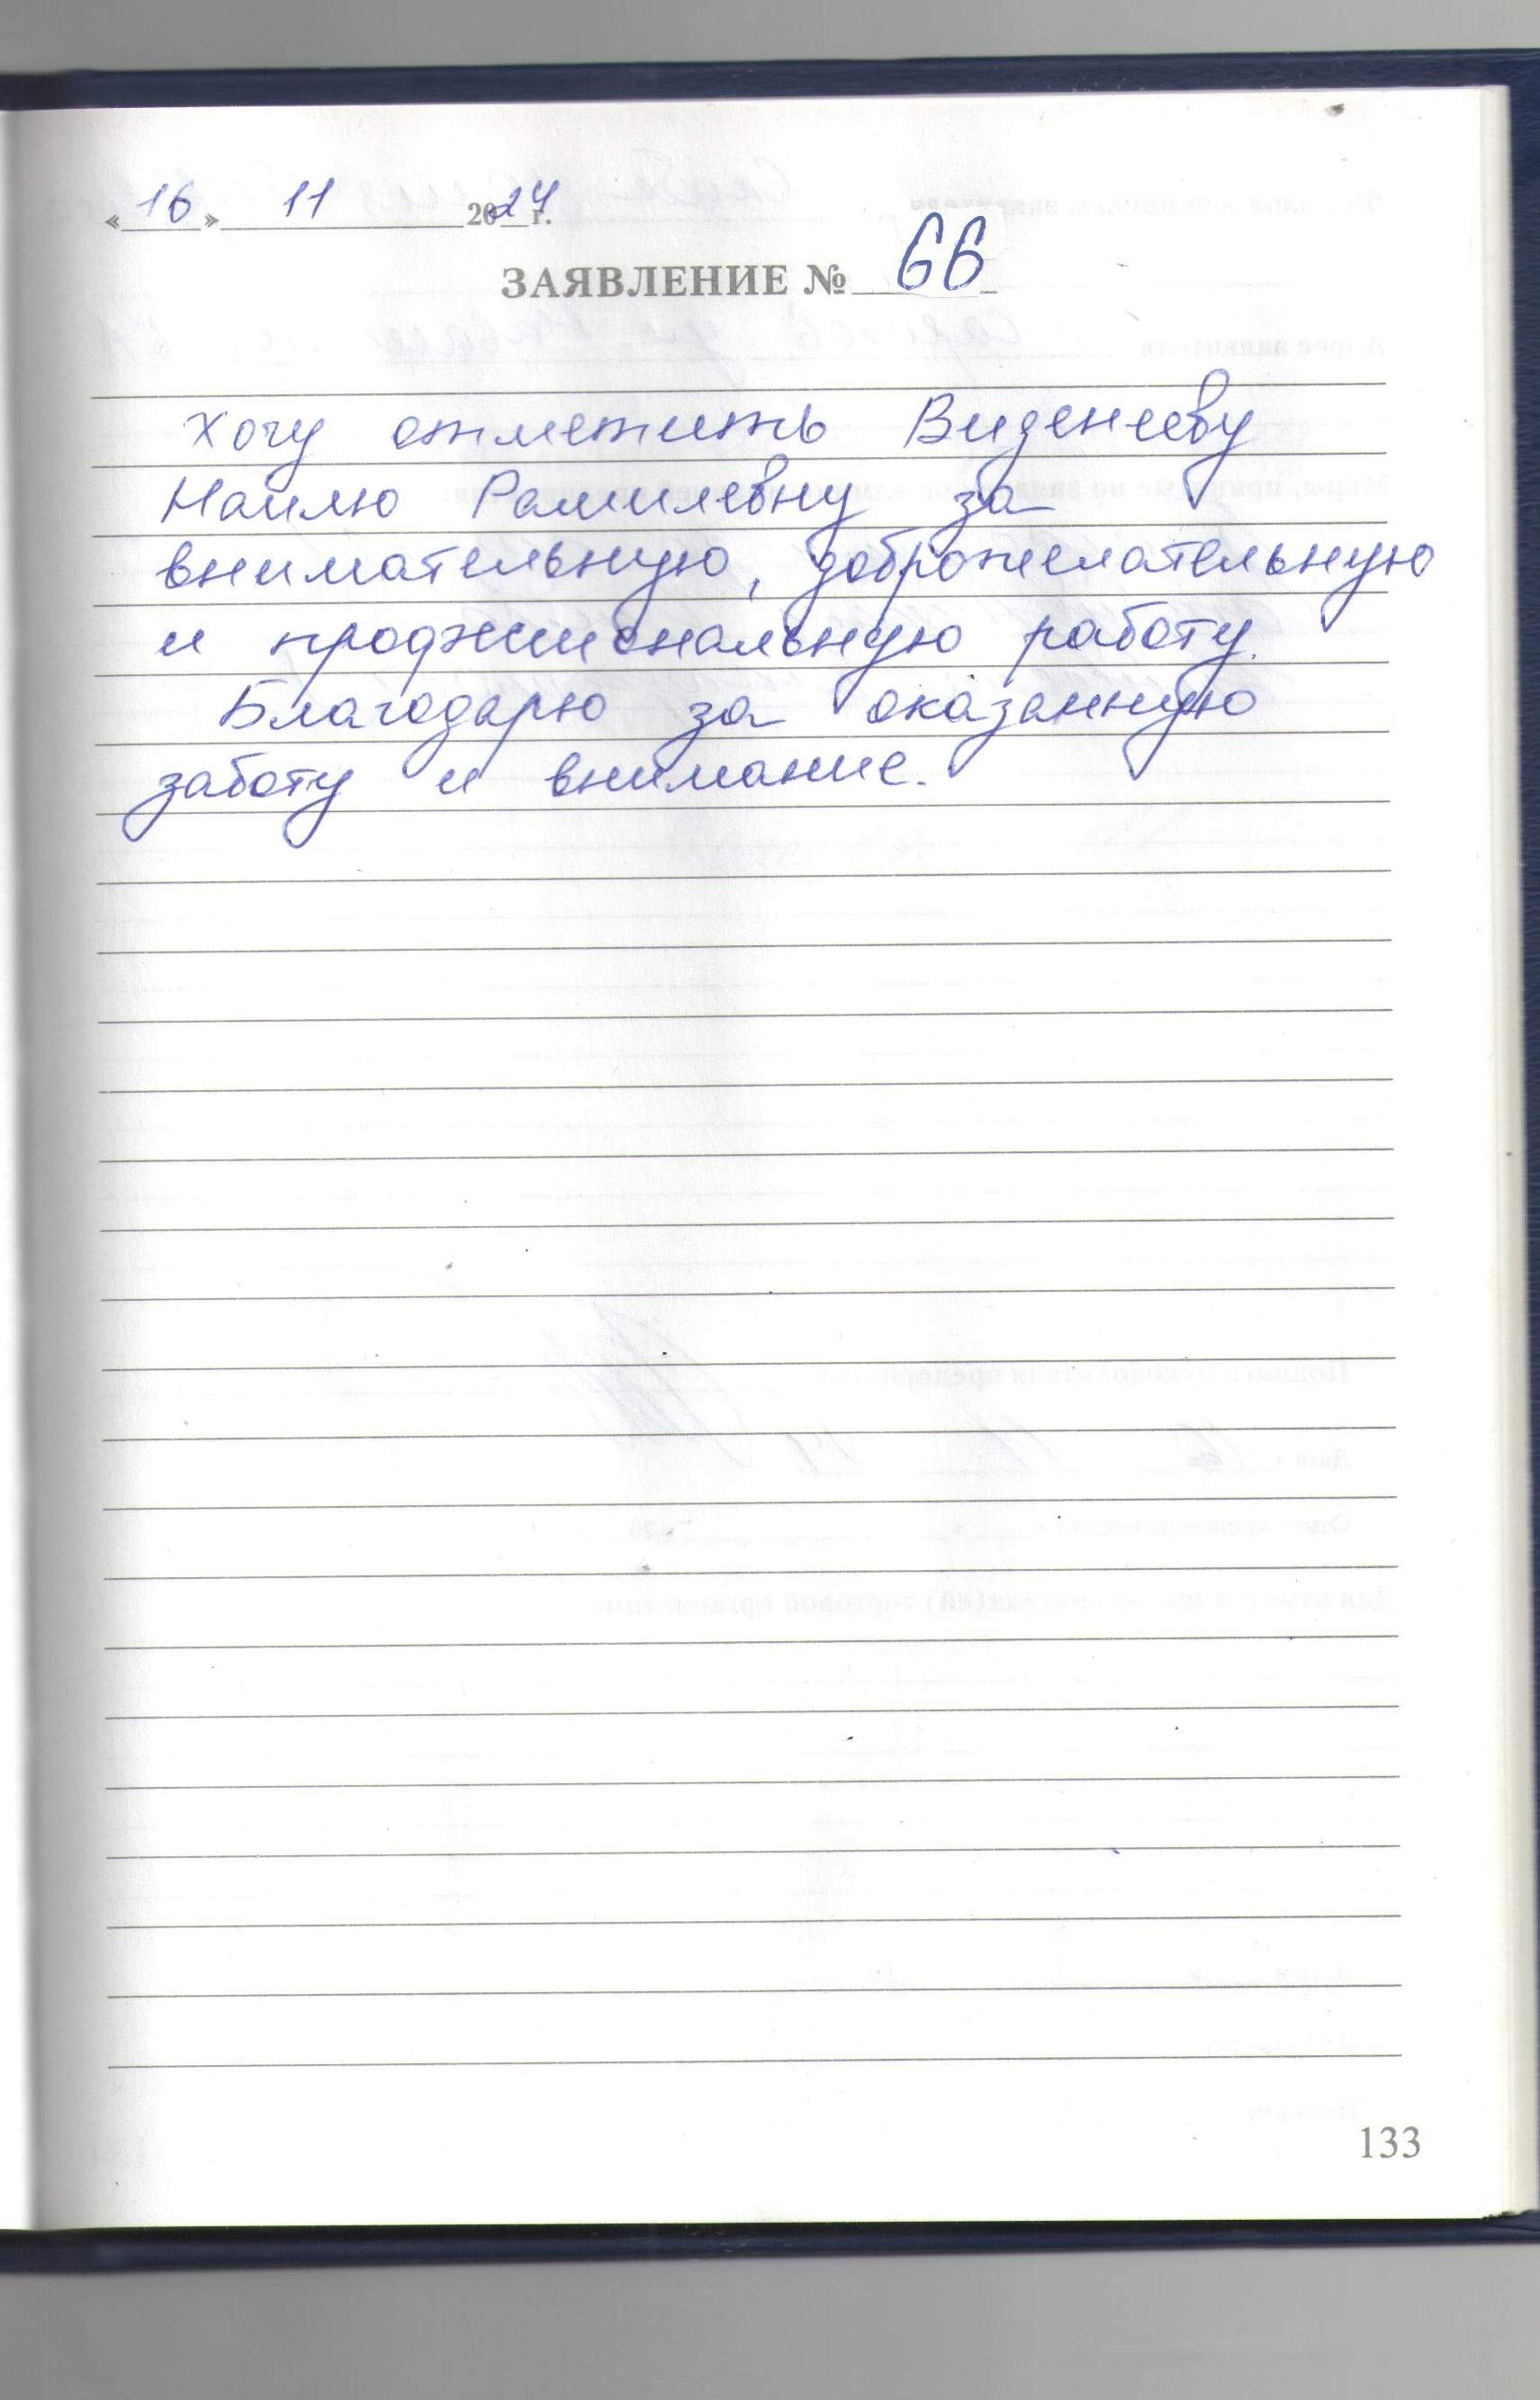 «16» 11 2024 г.
ЗАЯВЛЕНИЕ № 66
Хочу отметить Виденееву
Наилю Рамилевну за
внимательную, доброжелательную
и работу.
Благодарю за оказанную
заботу и внимание.
133